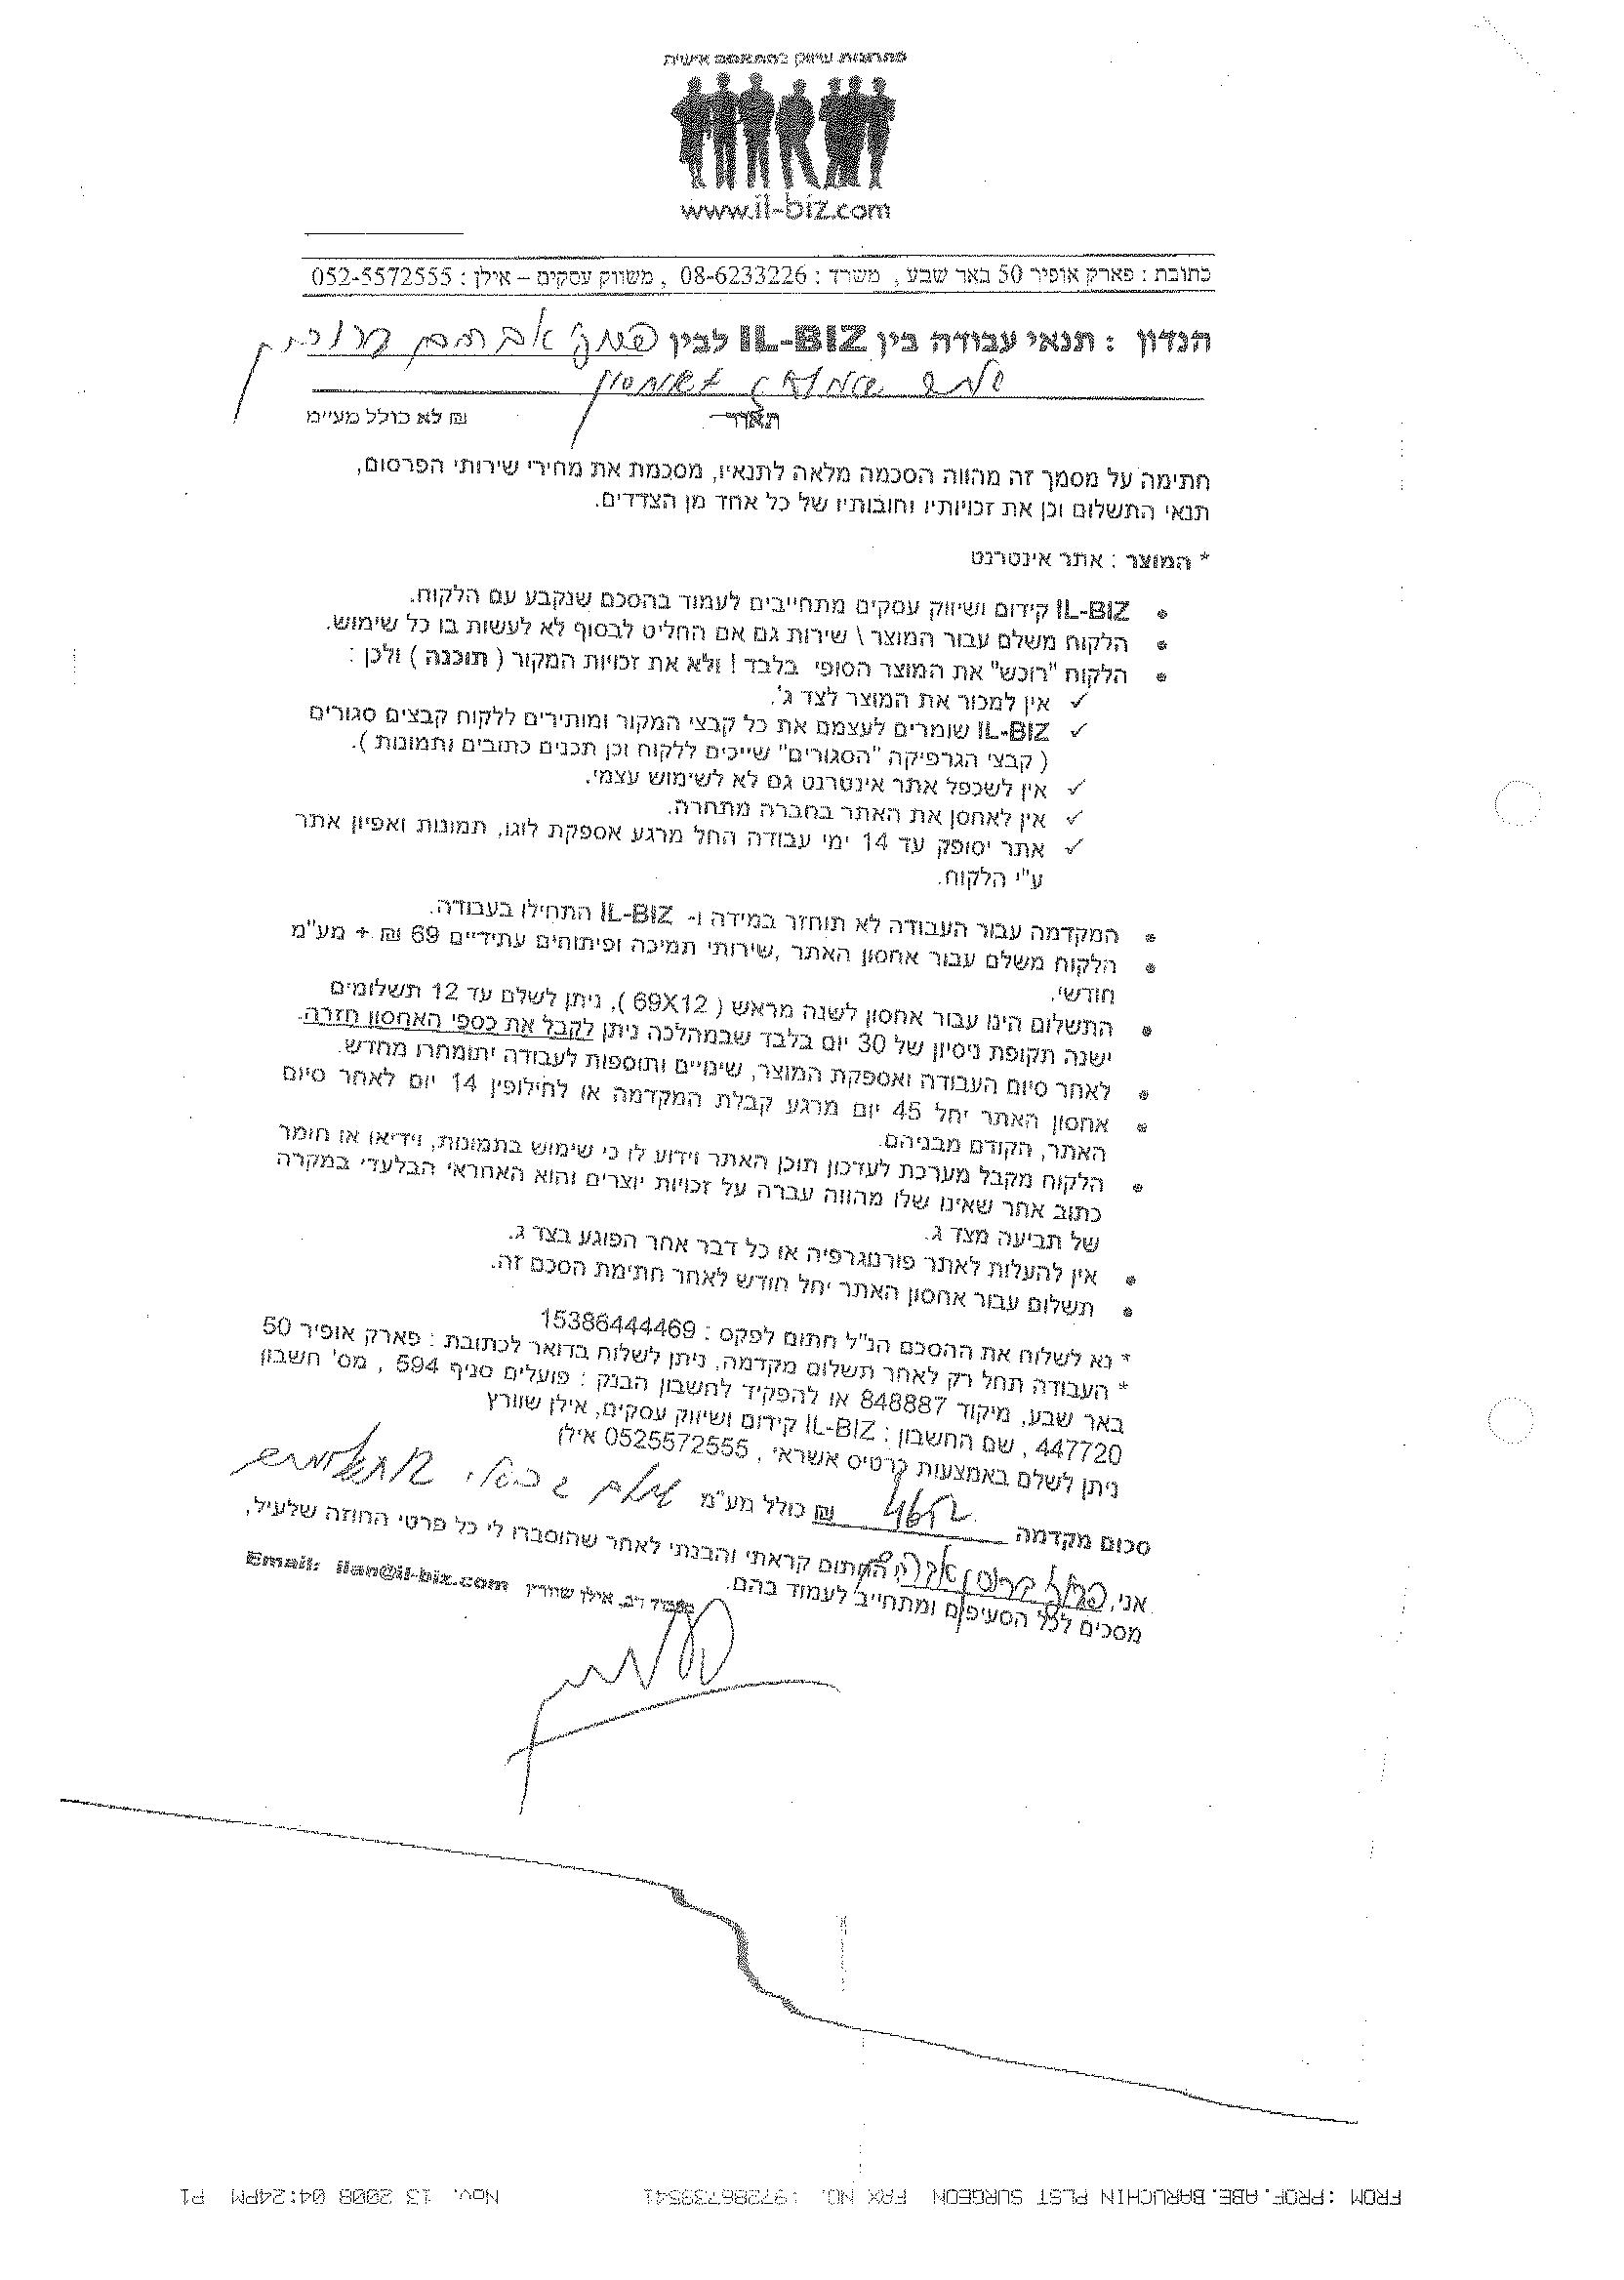 פתרונות שיווק בהתאמה אישית
www.il-biz.com
כתובת : פארק אופיר 50 באר שבע , משרד : 08-6233226 , משווק עסקים – אילן : 052-5572555
הנדון : תנאי עבודה בין IL-BIZ לבין
תאור ₪ לא כולל מעיימ
חתימה על מסמך זה מהווה הסכמה מלאה לתנאיו, מסכמת את מחירי שירותי הפרסום,
תנאי התשלום וכן את זכויותיו וחובותיו של כל אחד מן הצדדים.
* המוצר : אתר אינטרנט
• IL-BIZ קידום ושיווק עסקים מתחייבים לעמוד בהסכם שנקבע עם הלקוח.
• הלקוח משלם עבור המוצר \ שירות גם אם החליט לבסוף לא לעשות בו כל שימוש.
• הלקוח "רוכש" את המוצר הסופי בלבד ! ולא את זכויות המקור ( תוכנה ) ולכן :
✓ אין למכור את המוצר לצד ג'.
✓ IL-BIZ שומרים לעצמם את כל קבצי המקור ומותירים ללקוח קבצים סגורים
( קבצי הגרפיקה "הסגורים" שייכים ללקוח וכן תכנים כתובים ותמונות ).
✓ אין לשכפל אתר אינטרנט גם לא לשימוש עצמי.
✓ אין לאחסן את האתר בחברה מתחרה.
✓ אתר יסופק עד 14 ימי עבודה החל מרגע אספקת לוגו, תמונות ואפיון אתר
ע"י הלקוח.
• המקדמה עבור העבודה לא תוחזר במידה ו- IL-BIZ התחילו בעבודה.
• הלקוח משלם עבור אחסון האתר ,שירותי תמיכה ופיתוחים עתידיים 69 ₪ + מע"מ
חודשי.
• התשלום הינו עבור אחסון לשנה מראש ( 69X12 ), ניתן לשלם עד 12 תשלומים
ישנה תקופת ניסיון של 30 יום בלבד שבמהלכה ניתן לקבל את כספי האחסון חזרה.
• לאחר סיום העבודה ואספקת המוצר, שינויים ותוספות לעבודה יתומחרו מחדש.
• אחסון האתר יחל 45 יום מרגע קבלת המקדמה או לחילופין 14 יום לאחר סיום
האתר, הקודם מבניהם.
• הלקוח מקבל מערכת לעדכון תוכן האתר וידוע לו כי שימוש בתמונות, וידיאו או חומר
כתוב אחר שאינו שלו מהווה עברה על זכויות יוצרים והוא האחראי הבלעדי במקרה
של תביעה מצד ג.
• אין להעלות לאתר פורנוגרפיה או כל דבר אחר הפוגע בצד ג.
• תשלום עבור אחסון האתר יחל חודש לאחר חתימת הסכם זה.
* נא לשלוח את ההסכם הנ"ל חתום לפקס : 15386444469
* העבודה תחל רק לאחר תשלום מקדמה, ניתן לשלוח בדואר לכתובת : פארק אופיר 50
באר שבע, מיקוד 848887 או להפקיד לחשבון הבנק : פועלים סניף 594 , מס' חשבון
447720 , שם החשבון : IL-BIZ קידום ושיווק עסקים, אילן שוורץ
ניתן לשלם באמצעות כרטיס אשראי , 0525572555 אילן
סכום מקדמה ₪ כולל מע"מ
אני, החתום קראתי והבנתי לאחר שהוסברו לי כל פרטי החוזה שלעיל,
מסכים לכל הסעיפים ומתחייב לעמוד בהם.
בכבוד רב, אילן שוורץ Email: ilan@il-biz.com
FROM : PROF.ABE.BARUCHIN PLST SURGEON FAX NO. : 97286739541 Nov. 13 2008 04:24PM P1